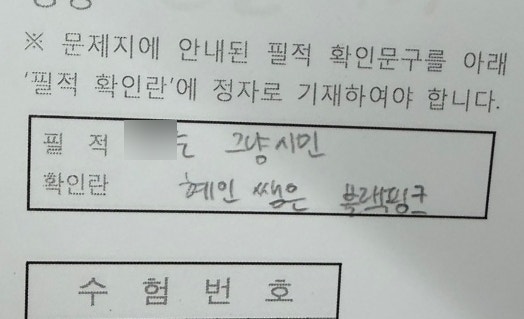 ※ 문제지에 안내된 필적 확인문구를 아래
‘필적 확인란’에 정자로 기재하여야 합니다.
필 적 그냥 시민
확인란 혜인 쌤은 블랙핑크
수 험 번 호